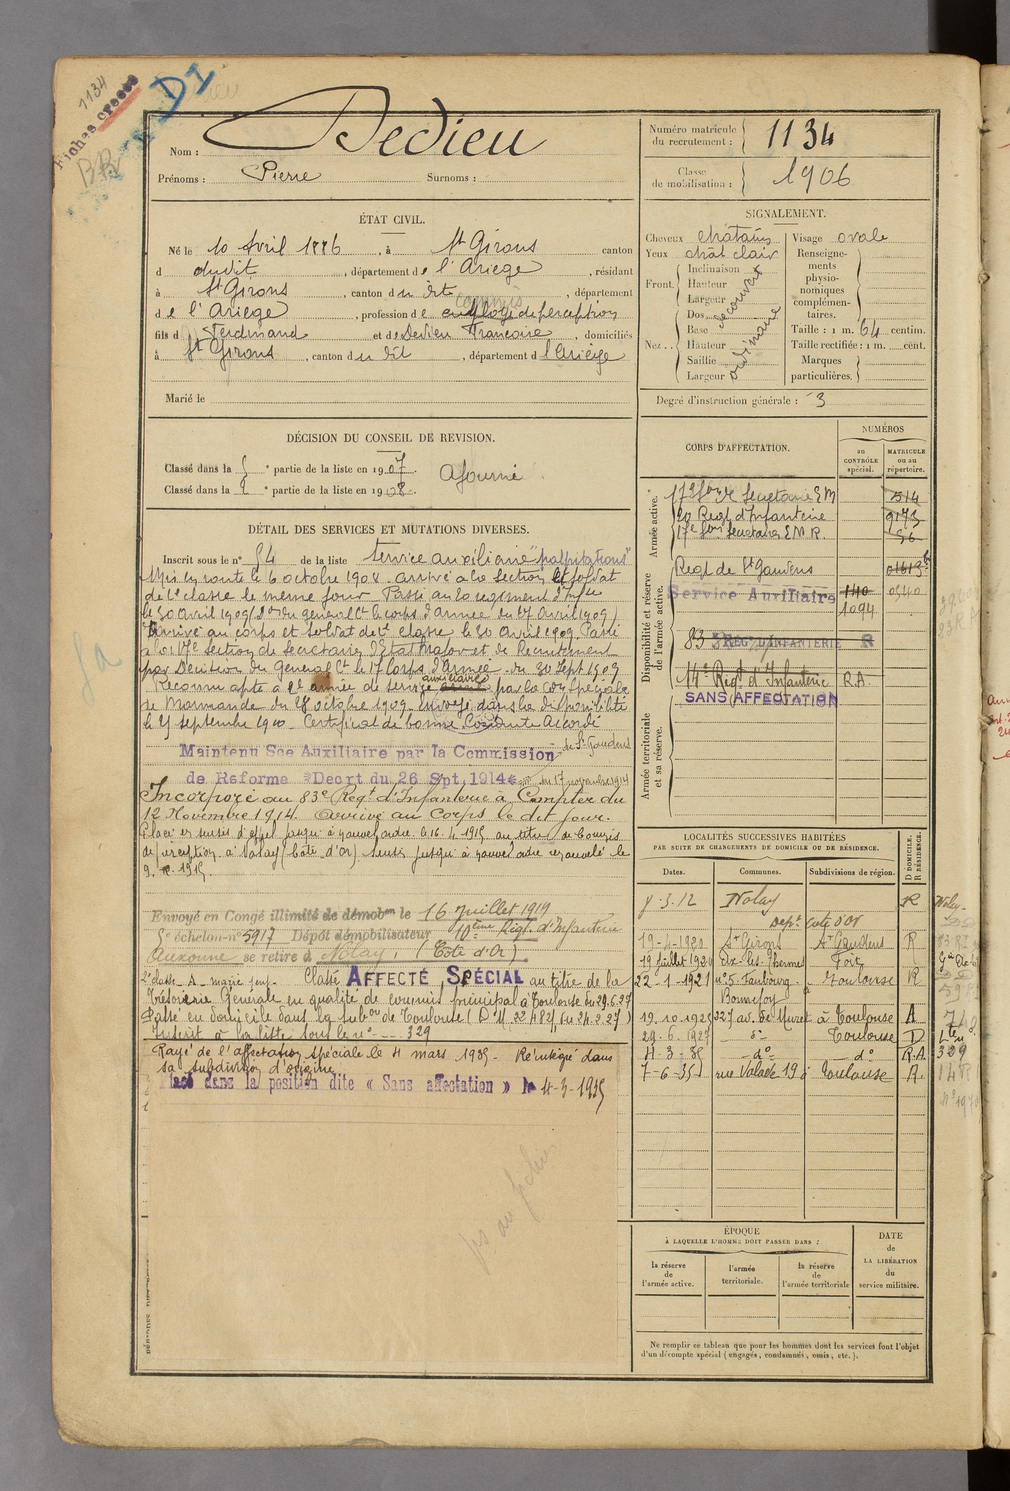 1134
Fiches
D1
BR
Nom : Dedieu
Prénoms : Pierre Surnoms :
Numéro matricule du recrutement : 1134
Classe de mobilisation : 1906
ÉTAT CIVIL.
Né le 10 Avril 1886, à St Girons canton
d dudit, département de l'Ariège, résidant
à St Girons, canton du dit, département
commis
de l'Ariège, profession de employé de perception
fils d Ferdinand et de Dedieu Françoise, domiciliés
à St Girons, canton du dit, département d l'Ariège
Marié le
SIGNALEMENT.
Cheveux châtains
Yeux chât clair
Front. Inclinaison
Hauteur
Largeur
découvert
Nez.. Dos
Base
Hauteur
Saillie
Largeur
ordinaire
Visage ovale
Renseignements physionomiques complémentaires.
Taille : 1 m. 64 centim.
Taille rectifiée : 1 m. cent.
Marques particulières.
Degré d'instruction générale : 3
DÉCISION DU CONSEIL DE REVISION.
Classé dans la 5 e partie de la liste en 1907. Ajourné
Classé dans la 2 e partie de la liste en 1908.
DÉTAIL DES SERVICES ET MUTATIONS DIVERSES.
Inscrit sous le n° 54 de la liste Service auxiliaire "palpitations"
Mis en route le 6 octobre 1908. arrivé à la Section et soldat
de 2e classe le même jour. Passé au 20 régiment d'Inf.ie
le 30 avril 1909 (Don du général Ct le corps d'armée du 27 avril 1909)
Arrivé au corps et soldat de 2e classe le 30 avril 1909. Passé
à la 17e Section de Secrétaires d'Etat Major et de Recrutement
par Décision du Général Ct le 17 Corps d'Armée du 30 Sept 1909
Reconnu apte à 2e année de service auxiliaire par la Con Spéciale
de Marmande du 28 octobre 1909. Envoyé dans la disponibilité
le 25 septembre 1910. Certificat de bonne Conduite Accordé
Maintenu Sce Auxiliaire par la Commission de St Gaudens
de Réforme Décrt du 26 Spt. 1914 du 17 novembre 1914
Incorporé au 83e Régt d'Infanterie à Compter du
12 Novembre 1914. Arrivé au Corps le dit jour.
Placé en sursis d'appel jusqu'à nouvel ordre le 16.4.1915 au titre de Commis
de perception à Nolay (Côte d'Or) sursis jusqu'à nouvel ordre renouvelé le
Envoyé en Congé illimité de démobon le 16 Juillet 1919
5e échelon-n° 5917 Dépôt démobilisateur 10ème Régt. d'Infanterie
Auxonne se retire à Nolay, (Côte d'Or)
Classé AFFECTÉ SPÉCIAL au titre de la
Trésorerie Générale en qualité de commis principal à Toulouse du 29.6.27
Passé en domicile dans la subon de Toulouse
Inscrit à la liste sous le n° -- 329
Rayé de l'affectation spéciale le 4 mars 1935. Réintégré dans
sa subdivision d'origine
Placé dans la position dite « Sans affectation » le 4-3-1935
pas au fichier
CORPS D'AFFECTATION.
NUMÉROS
au CONTRÔLE spécial.
MATRICULE ou au répertoire.
Armée active.
17e Son de Secrétaires E M 514
20 Régt d'Infanterie 9173
17e Son Secrétaires E. M. R. 56
Disponibilité et réserve de l'armée active.
Regt de St Gaudens
Service Auxiliaire 140 0540
1094
83 REGT D'INFANTERIE R
14e Régt d'Infanterie R.A.
SANS AFFECTATION
Armée territoriale et sa réserve.
LOCALITÉS SUCCESSIVES HABITÉES
PAR SUITE DE CHANGEMENTS DE DOMICILE OU DE RÉSIDENCE.
Dates. Communes. Subdivisions de région. D DOMICILE. R RÉSIDENCE.
8-3-12 Nolay R
Dept Côte d'Or
19-4-1920 St Girons St Gaudens R
19 juillet 1920 Ax-les-Thermes Foix
22-1-1921 n° 5 Faubourg Bonnefoy à Toulouse R
19.10.1925 327 av. de Muret à Toulouse R
29.6.1927 d° Toulouse D
4-3-35 d° d° R.A
7-6-35 rue Valade 19 à Toulouse R.
ÉPOQUE
À LAQUELLE L'HOMME DOIT PASSER DANS :
la réserve de l'armée active.
l'armée territoriale.
la réserve de l'armée territoriale
DATE de LA LIBÉRATION du service militaire.
Ne remplir ce tableau que pour les hommes dont les services font l'objet
d'un décompte spécial (engagés, condamnés, omis, etc.).